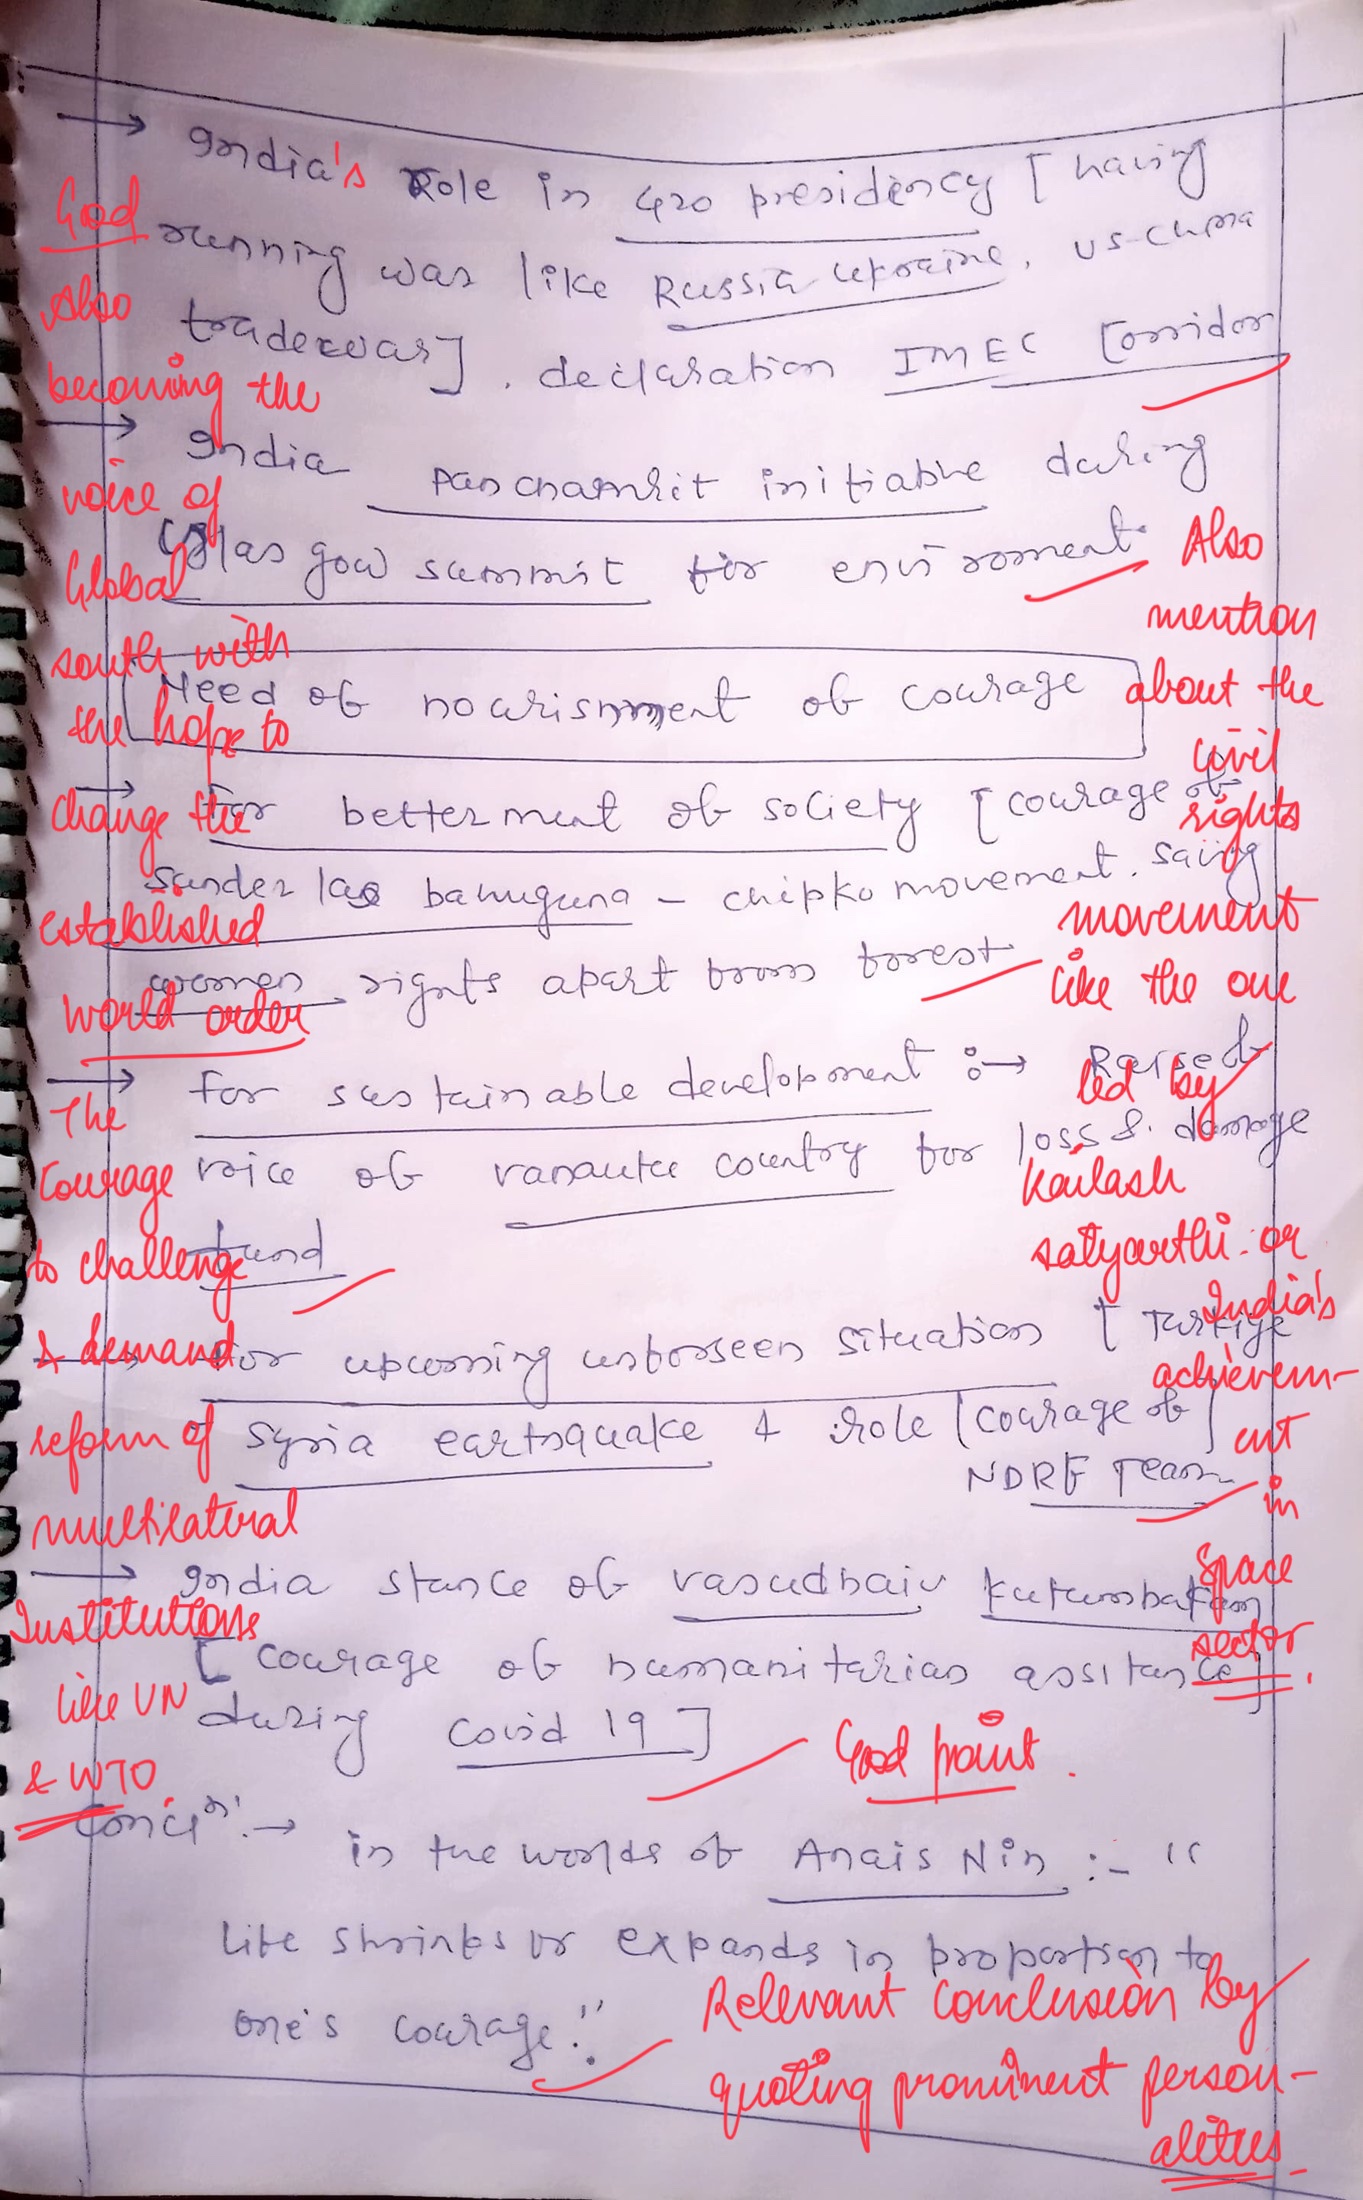 → India's Role in G20 presidency [having
running was like Russia Ukraine, US-China
tradewar]. declaration IMEC Corridor
→ India panchamrit initiative during
Glasgow summit for enviroment
Need of nourishment of courage
→ For betterment of society [courage of
Sunder lal bahuguna - chipko movement. saving
women rights apart from forest
→ for sustainable development :→ Raised
voice of vanautu country for loss & damage
fund
→ For upcoming unforseen situation [Turkiye
Syria earthquake & role (courage of]
NDRF Team
→ India stance of vasudhaiv kutumbakam
[courage of humanitarian assitance]
during Covid 19]
Concln :→ in the words of Anais Nin :- "
Life shrinks or expands in proportion to
one's courage."
God
Also
becoming the
voice of
Global
south with
the hope to
change the
established
world order
The
Courage
to challenge
& demand
reform of
multilateral
Institutions
like UN
& WTO.
Also
mention
about the
civil
rights
movement
like the one
led by
Kailash
satyarthi or
India's
achievem-
ent
in
Space
sector.
Good point.
Relevant Conclusion by
quoting prominent person-
alities.